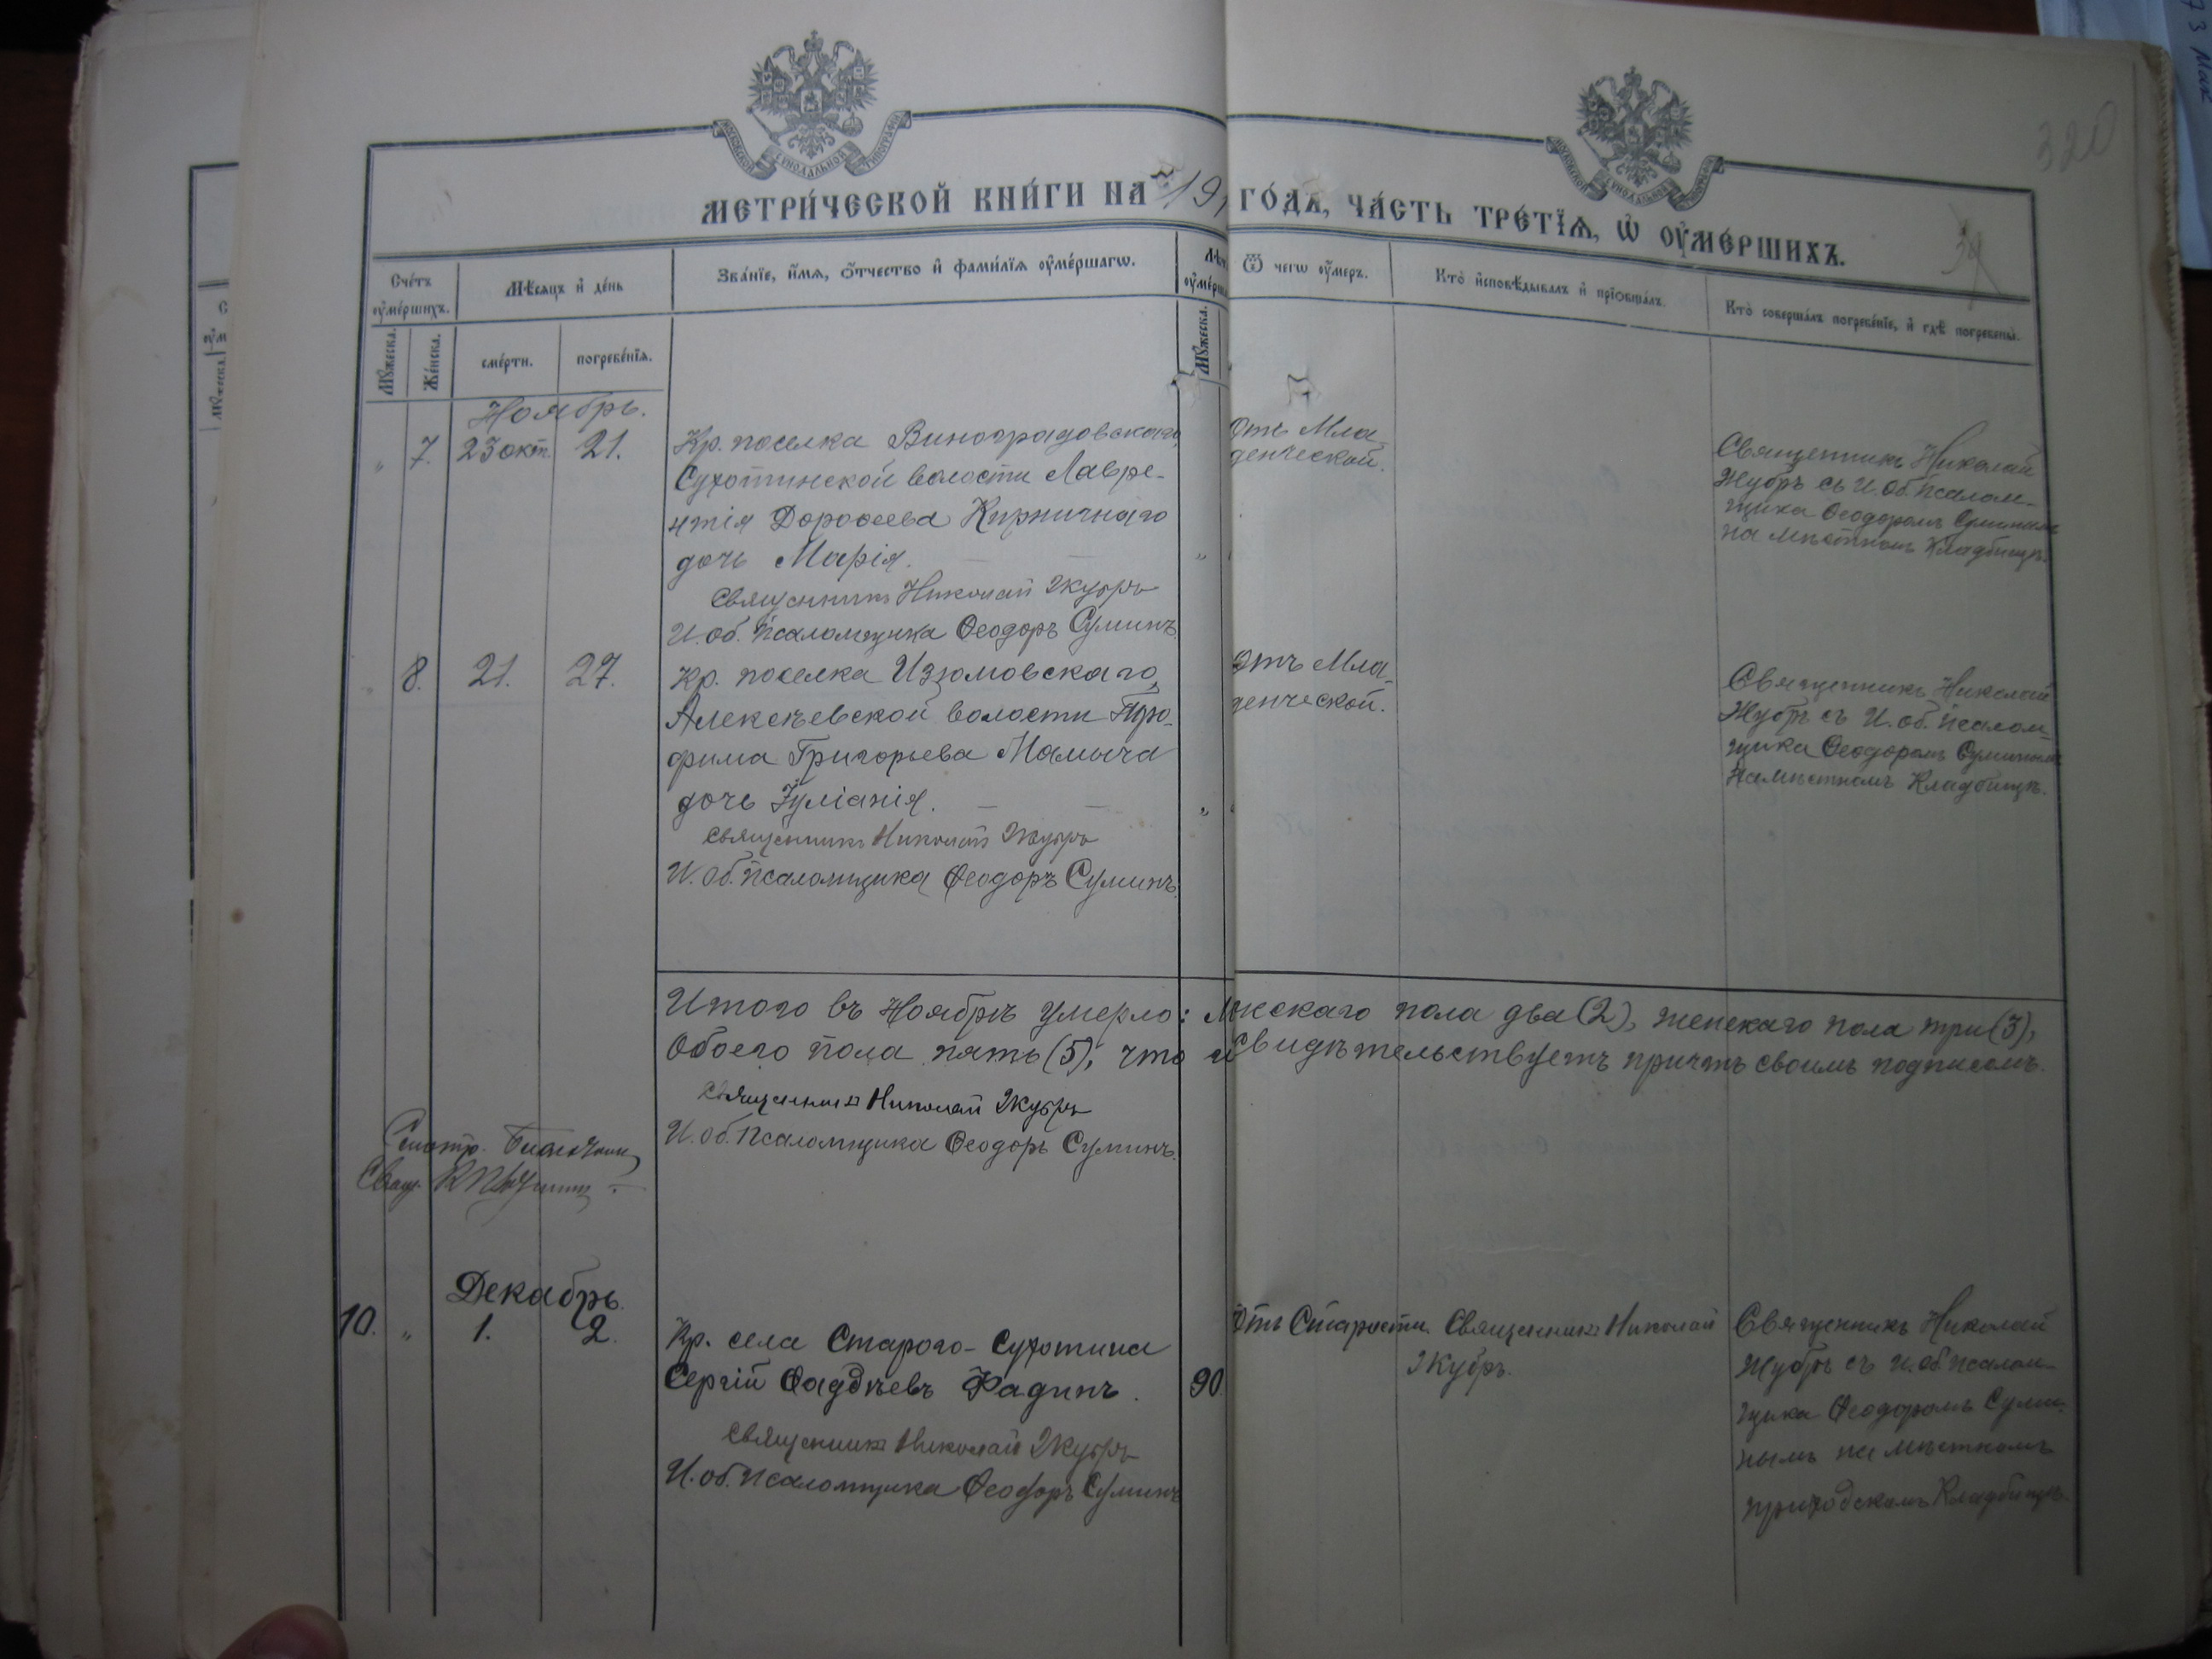 МОСКОВСКОЙ СѴНОДАЛЬНОЙ ТИПОГРАФІИ
МОСКОВСКОЙ СѴНОДАЛЬНОЙ ТИПОГРАФІИ
320
МЕТРИ́ЧЕСКОЙ КНИ́ГИ НА 191 ГО́ДА, ЧА́СТЬ ТРЕ́ТЇѦ, Ѡ҆ ОУ҆МЕ́РШИХЪ.
Сче́тъ оу҆ме́ршихъ.
Мѣ́сѧцъ и҆ де́нь
Зва́нїе, и҆́мѧ, ѻ҆́тчество и҆ фами́лїѧ оу҆ме́ршагѡ.
Ѿ чегѡ̀ оу҆́меръ.
Кто̀ и҆сповѣ́дывалъ и҆ прїѻбща́лъ.
Кто̀ соверша́лъ погребе́нїе, и҆ гдѣ̀ погребены̀.
Мꙋ́жеска.
Же́нска.
сме́рти.
погребе́нїѧ.
Мꙋ́жеска.
Ноябрь.
" 7. 23 окт. 21.
Кр. поселка Виноградовскаго,
Сухотинской волости Лавре-
нтія Дороѳеева Кирничнаго
дочь Марія.
Священникъ Николай Жубръ
И. об. псаломщика Ѳеодоръ Суминъ.
"
Отъ Мла-
денческой.
Священникъ Николай
Жубръ съ И. об. псалом-
щика Ѳеодоромъ Суминымъ
на мѣстномъ кладбищѣ.
" 8. 21. 27.
Кр. поселка Изюмовскаго,
Алексѣевской волости Тро-
фима Григорьева Мамыча
дочь Іуліанія.
Священникъ Николай Жубръ
И. об. псаломщика Ѳеодоръ Суминъ.
"
Отъ Мла-
денческой.
Священникъ Николай
Жубръ съ И. об. псалом-
щика Ѳеодоромъ Суминымъ
на мѣстномъ кладбищѣ.
Итого въ Ноябрѣ умерло: Мжскаго пола два (2), женскаго пола три (3),
Обоего пола пять (5), что и свидѣтельствуетъ причтъ своимъ подписомъ.
Священникъ Николай Жубръ
И. об. псаломщика Ѳеодоръ Суминъ.
Свящ.
Декабрь.
10. " 1. 2.
Кр. села Старого-Сухотина
Сергій Ѳаддѣевъ Фадинъ.
Священникъ Николай Жубръ
И. об. псаломщика Ѳеодоръ Суминъ
90.
Отъ Старости.
Священникъ Николай
Жубръ.
Священникъ Николай
Жубръ съ и. об. псалом-
щика Ѳеодоромъ Суми-
нымъ на мѣстномъ
приходскомъ кладбищѣ.